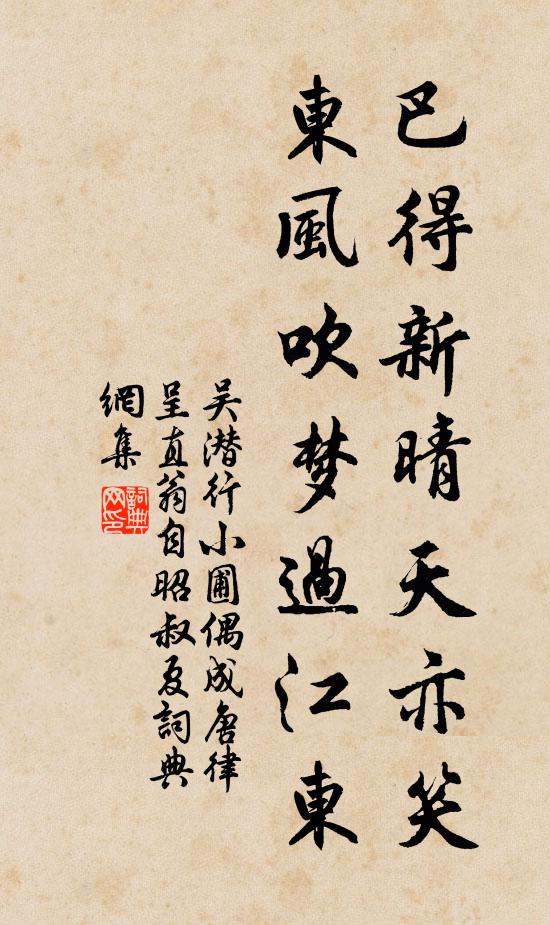 巳得新晴天亦笑
東風吹梦過江東
吴潜行小圃偶成唐律
呈直翁自昭叔夏詞典
網集
詞典網印